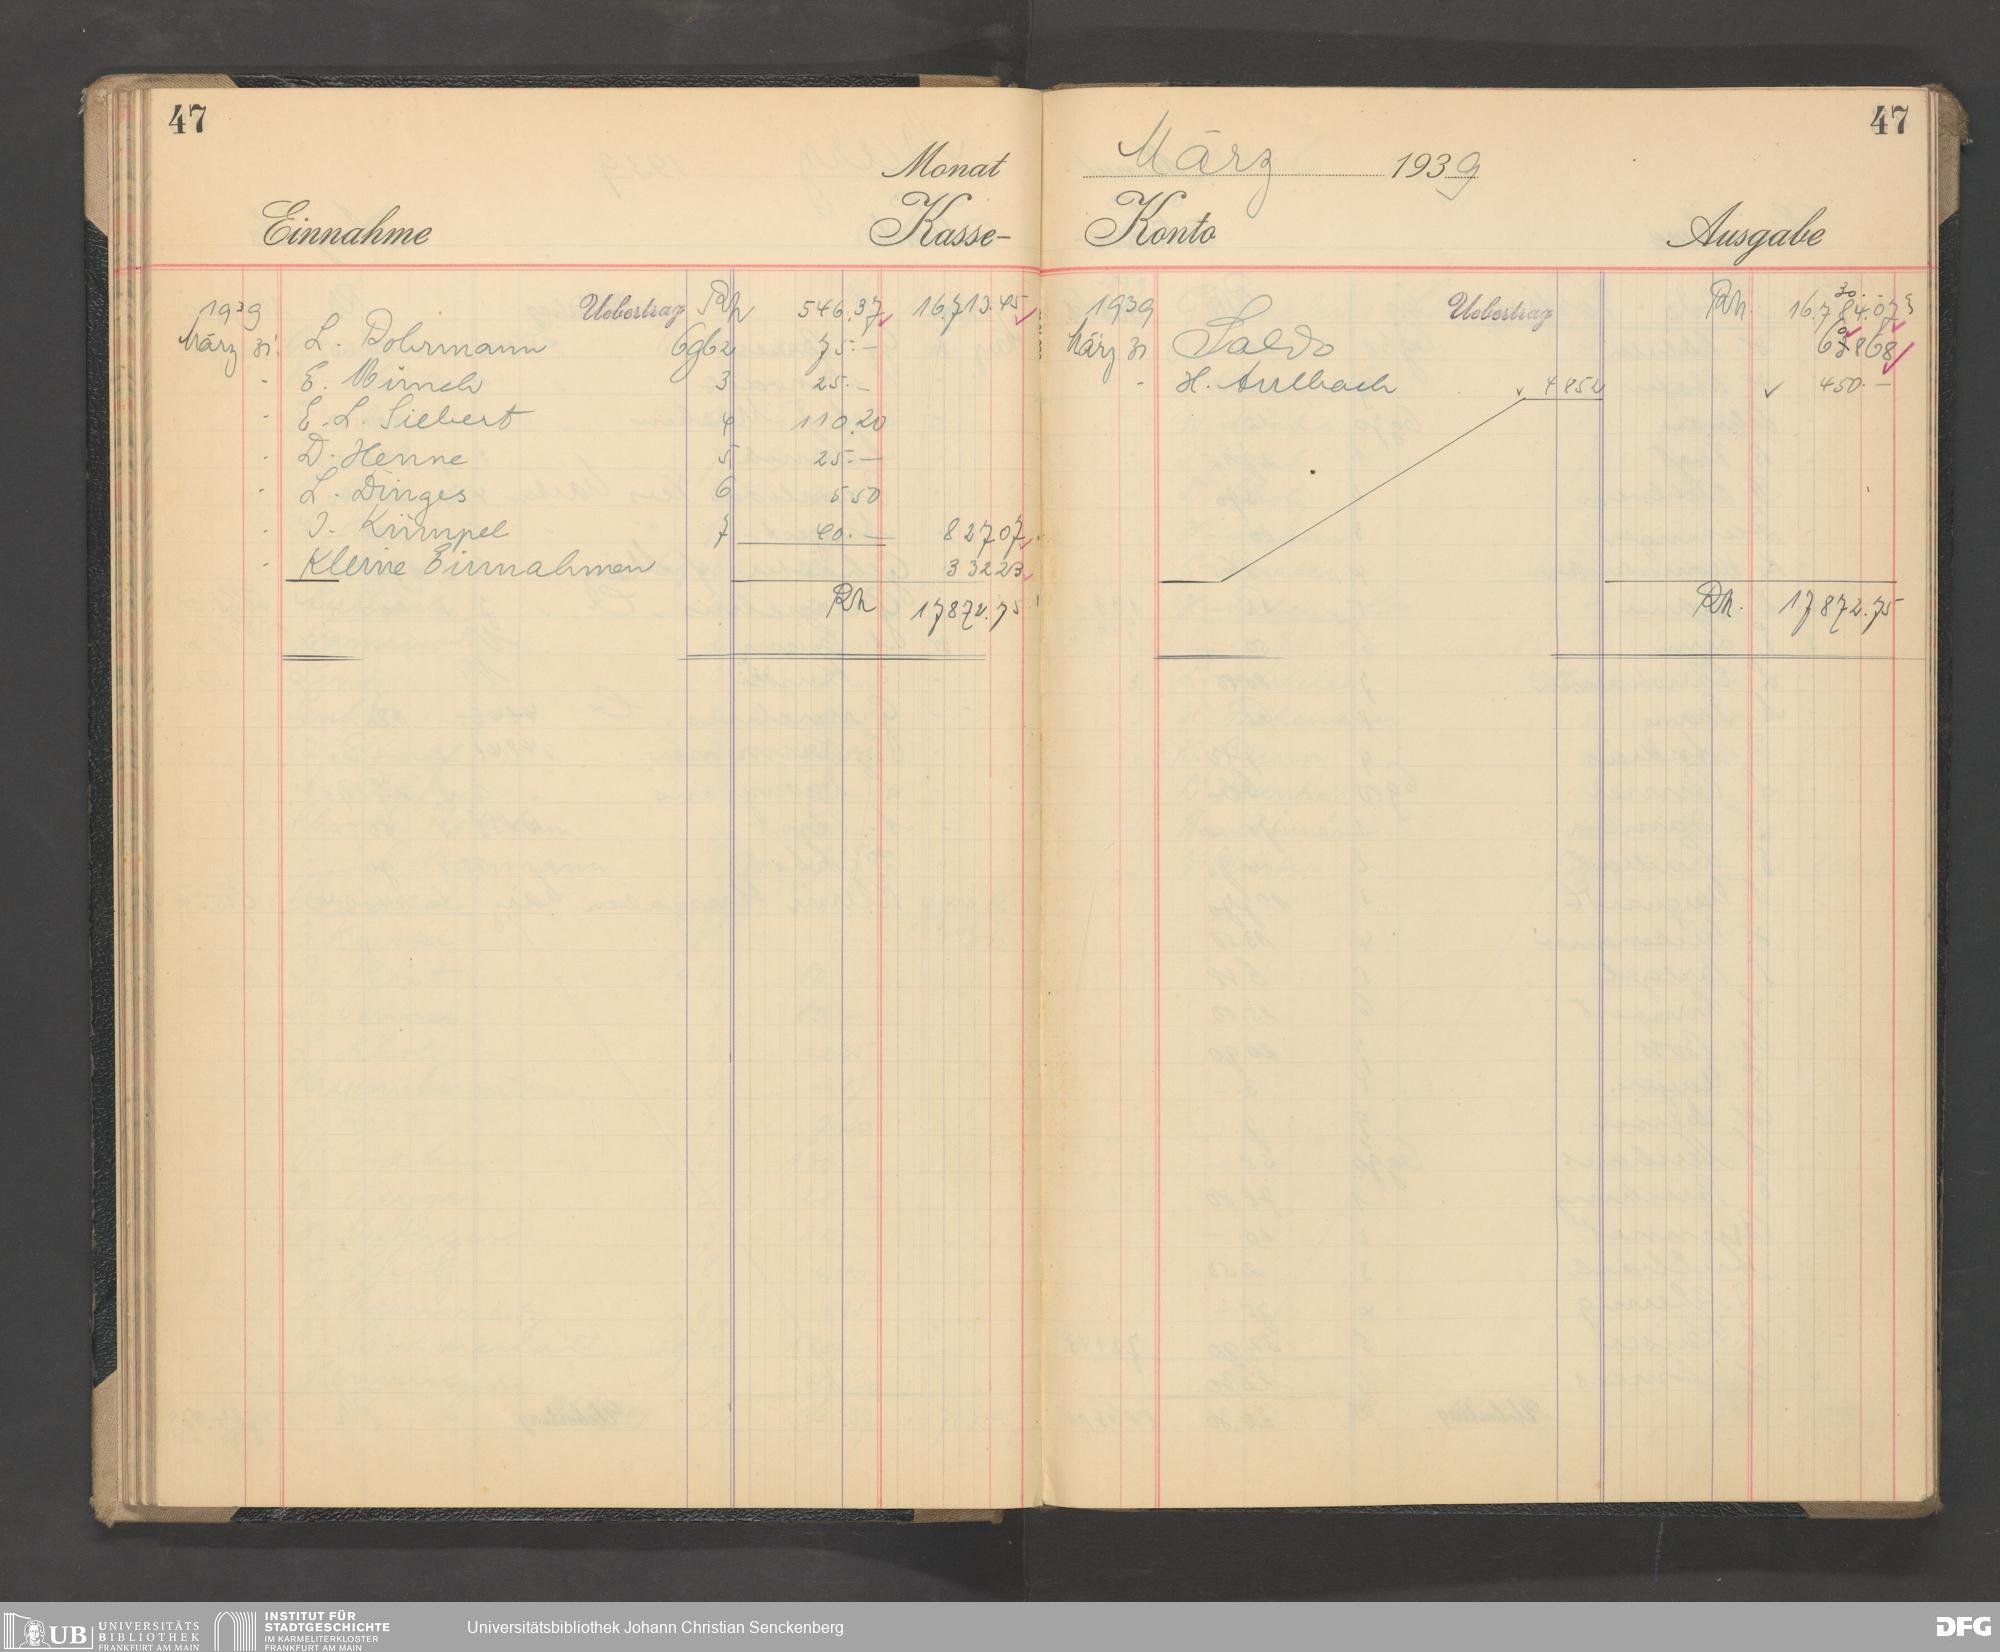 47
Monat
Einnahme Kasse-
1939 Uebertrag Rℳ 546.37 16.713.45
März 31. L. Dohrmann 6962 75.—
" E. Münch 3 25.—
" E. L. Siebert 4 110.20
" D. Henne 5 25.—
" L. Dinges 6 5 50
" J. Kümpel 7 40.— 827 07
" Kleine Einnahmen 332 23
Rℳ 17872.75
47
März 1939
Konto Ausgabe
1939 Uebertrag Rℳ. 16.784.07
März 31 Saldo
" H. Aulbach 4852 450.—
Rℳ. 17872.75
UB UNIVERSITÄTS
BIBLIOTHEK
FRANKFURT AM MAIN
INSTITUT FÜR
STADTGESCHICHTE
IM KARMELITERKLOSTER
FRANKFURT AM MAIN
Universitätsbibliothek Johann Christian Senckenberg
DFG